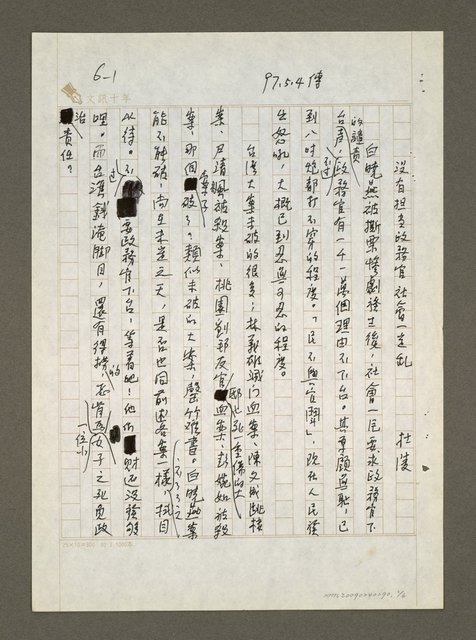 6-1
97.5.4傳
文訊十年
沒有担當政務官社會一定亂
杜萱
白曉燕被撕票慘劇發生後，社會一片要求政務官下
台声的譴責，政務官有一千一萬個理由不下台。其軍顏無恥，已
到八吋炮都打不穿的程度。「民不與官鬥」，現在人民發
生怒吼，大概已到忍無可忍的程度。
台灣大案未破的很多：林義雄滅門血案、陳文成跳樓
案、尹清楓被殺案、桃園劉邦友官邸也死一重傷的大血案、彭婉如被殺
案，那個案子破了？類似未破的大案，罄竹難書。白曉燕案
能不能破，尚在未定之天，是否也同前面各案一樣，不了了之，拭目
以待。不過要政務官下台，等着吧！他們的財还没發够
哩。而台灣錢淹脚目，還有得撈，怎肯為一位小女子之死負政
治責任？
25×12=300